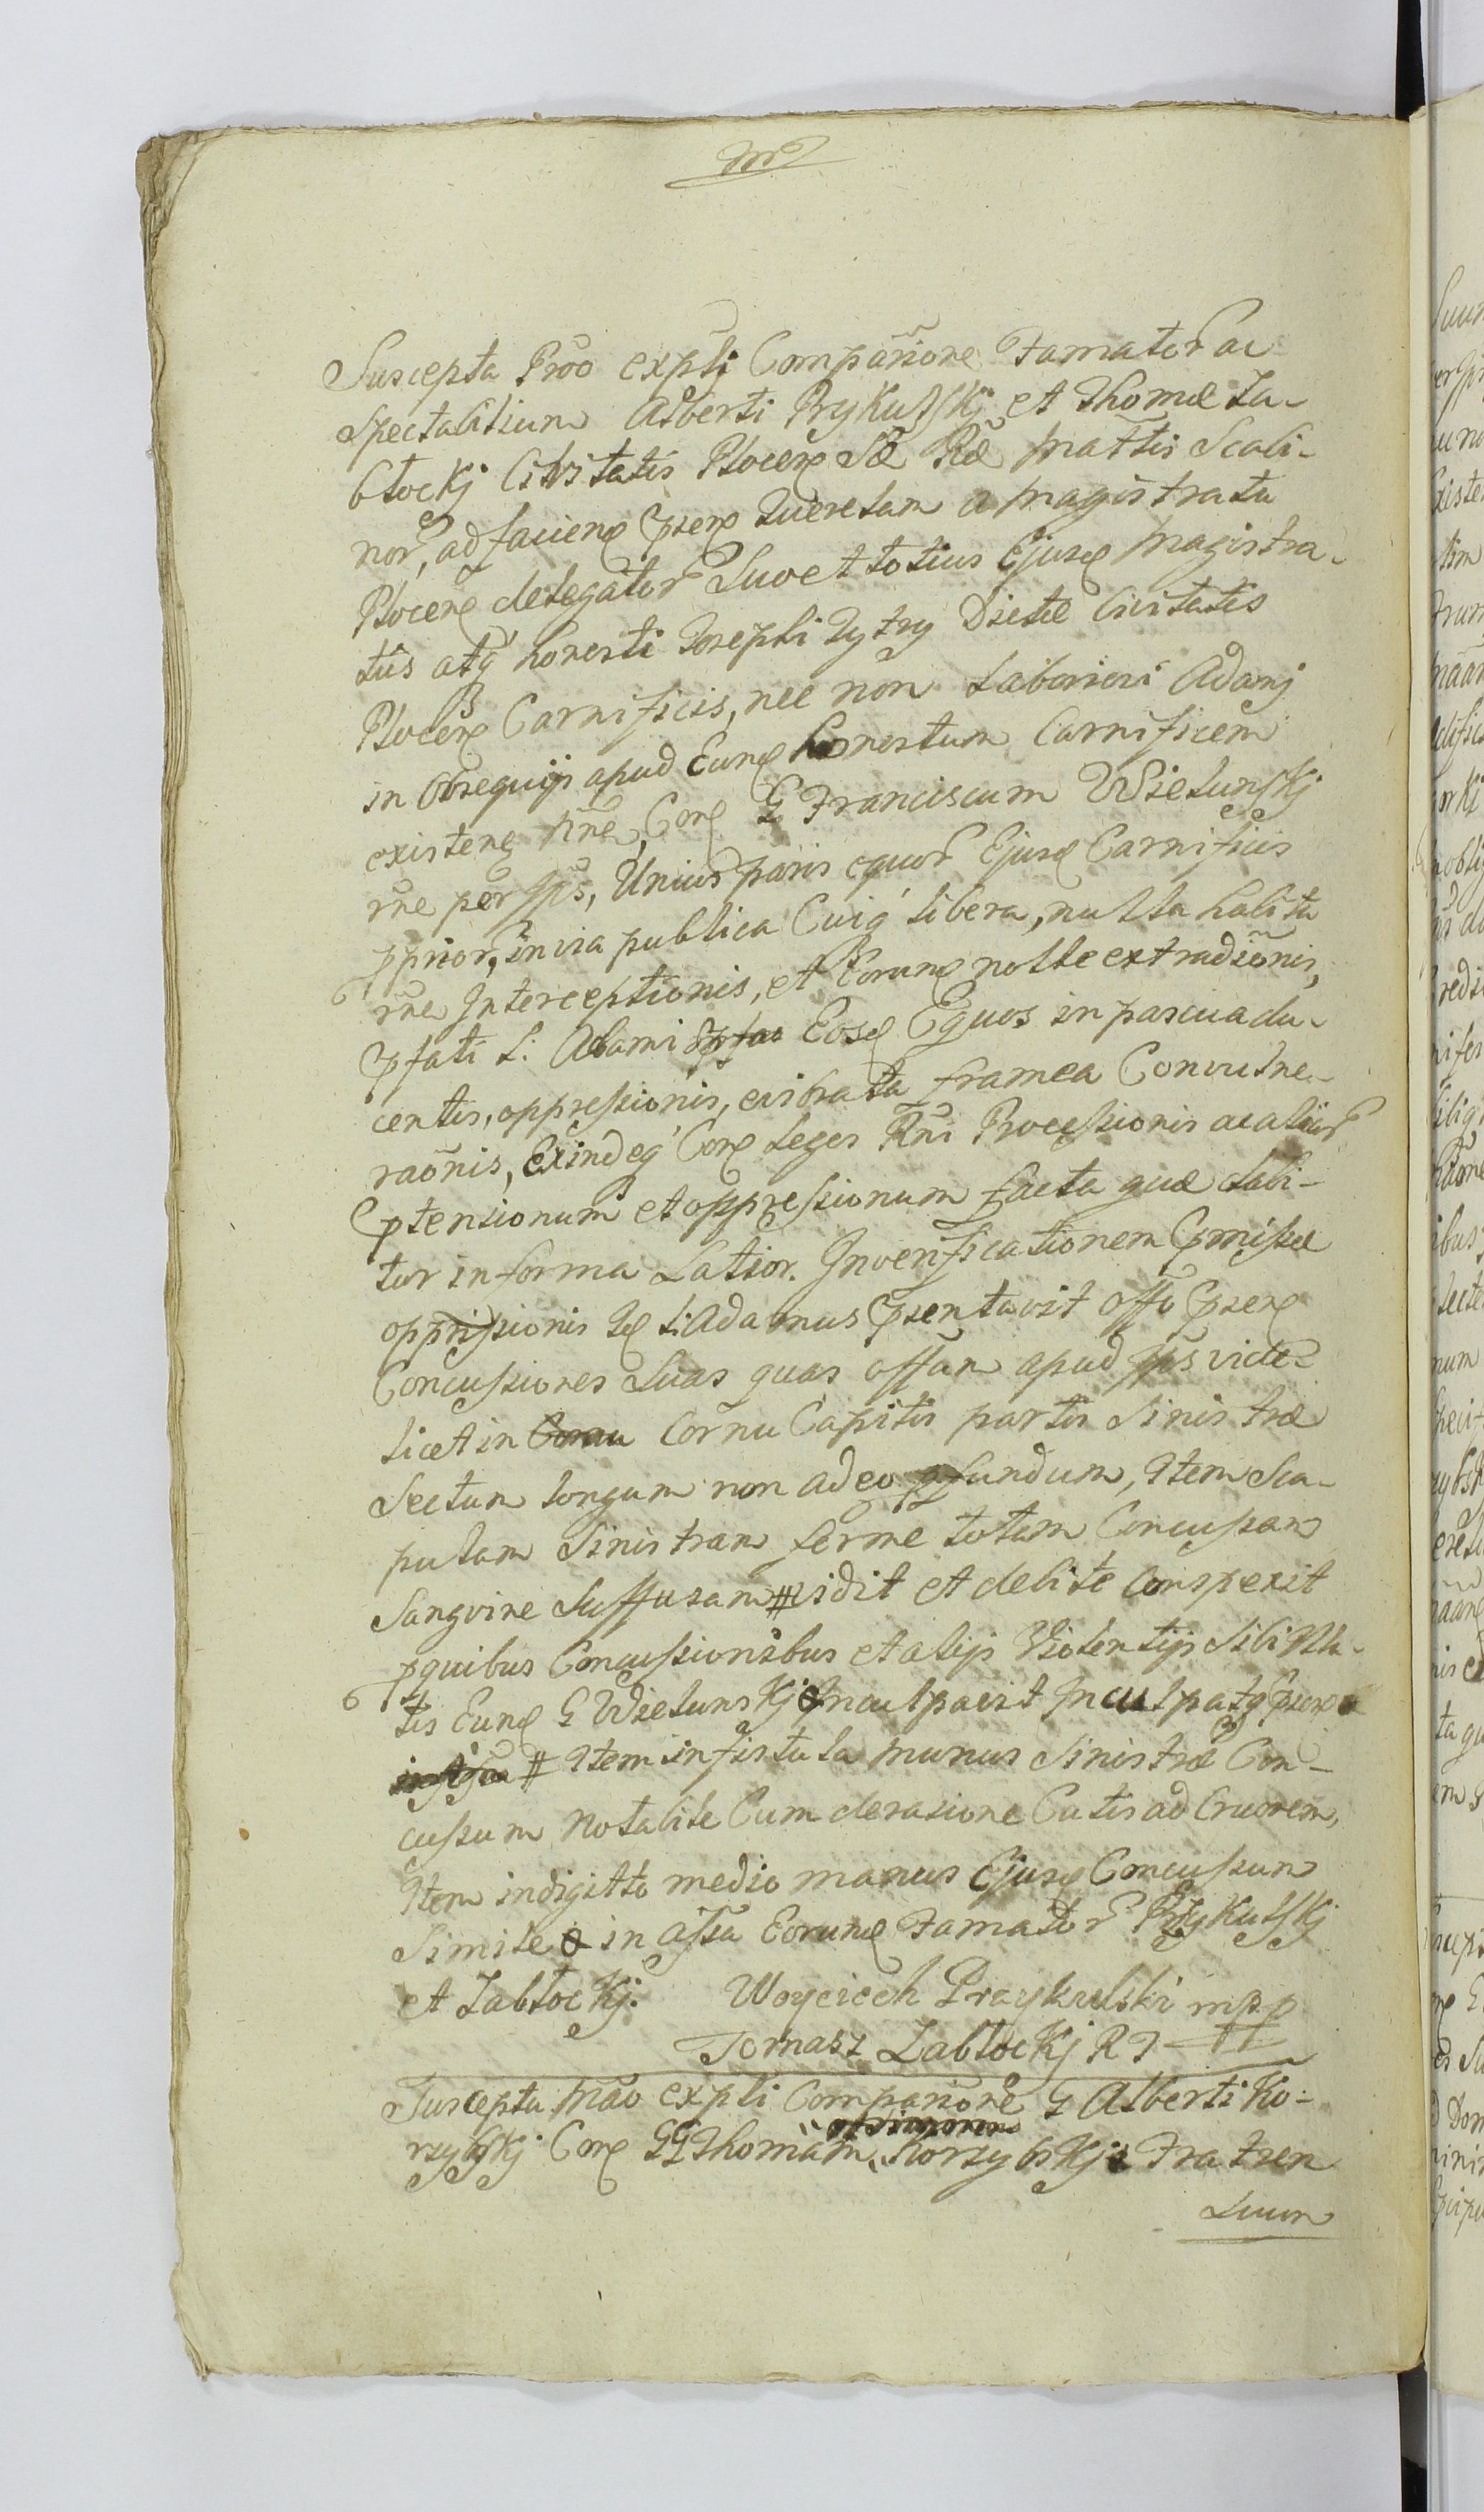 Suscepta Proō expłi Compariōne Famator ac
Spectabilium Alberti Przykulskj et Thomæ Za-
błockj Civitatis Plocen Sæ Ræ Mattis Scabi-
nor, ad facien pñsen Querelam a Magistratu
Plocen delegator Suo et totius Ejusd Magistra-
tus atq honesti Josephi Dictæ Civitatis
Plocen Carnificis, nec non Laboriosi Adamj
in Obsequijs apud Eund honestum Carnificem
existen nñe, Con G Franciscum Wieluńskj
rñe per Ips, Unius paris equor Ejusd Carnificis
pprior, in via publica Cuiq libera, nulla habita
rñe Interceptionis, et Eorund nolle extradiōnis,
pfati L: Adami Eosd Equos in pascua du-
centis, oppressionis, evibrata framea Convulne-
raōnis, Exindeq Con Leges Rñi Processionis ac alior
ptensionum et oppressionum facta quæ dabi-
tur in forma Latior. In verificationem pmissæ
oppressionis Id L: Adamus pñsentavit offo pñsen
Concussiones Suas quas offũm apud Ips vide-
licet in Cornu Cornu Capitis partis Sinistræ
Sectum longum non adeo pfundum, Item Sca-
pulam Sinistram ferme totam Concussam
Sanguine Suffusam # vidit et debite Conspexit
p quibus Concussionibus et alijs Violentijs Sibi Illa-
tis Eund G Wieluńskj Inculpavit Inculpatq pñsen
# Item in fistula manus Sinistræ Con-
cussum Notabile Cum derasione Cutis ad Cruorem,
Item in digitto medio manus Ejusd Concussum
Simile in assa Eorund Famator Przykulskj
et Zabłockj. Woyciech Przykulski mpp
Tomasz Zabłockj R J
Suscepta Mão expłi Compariōne G Alberti Ko-
rzybskj Con GG Thomam Korzybskj Fratren
Suum